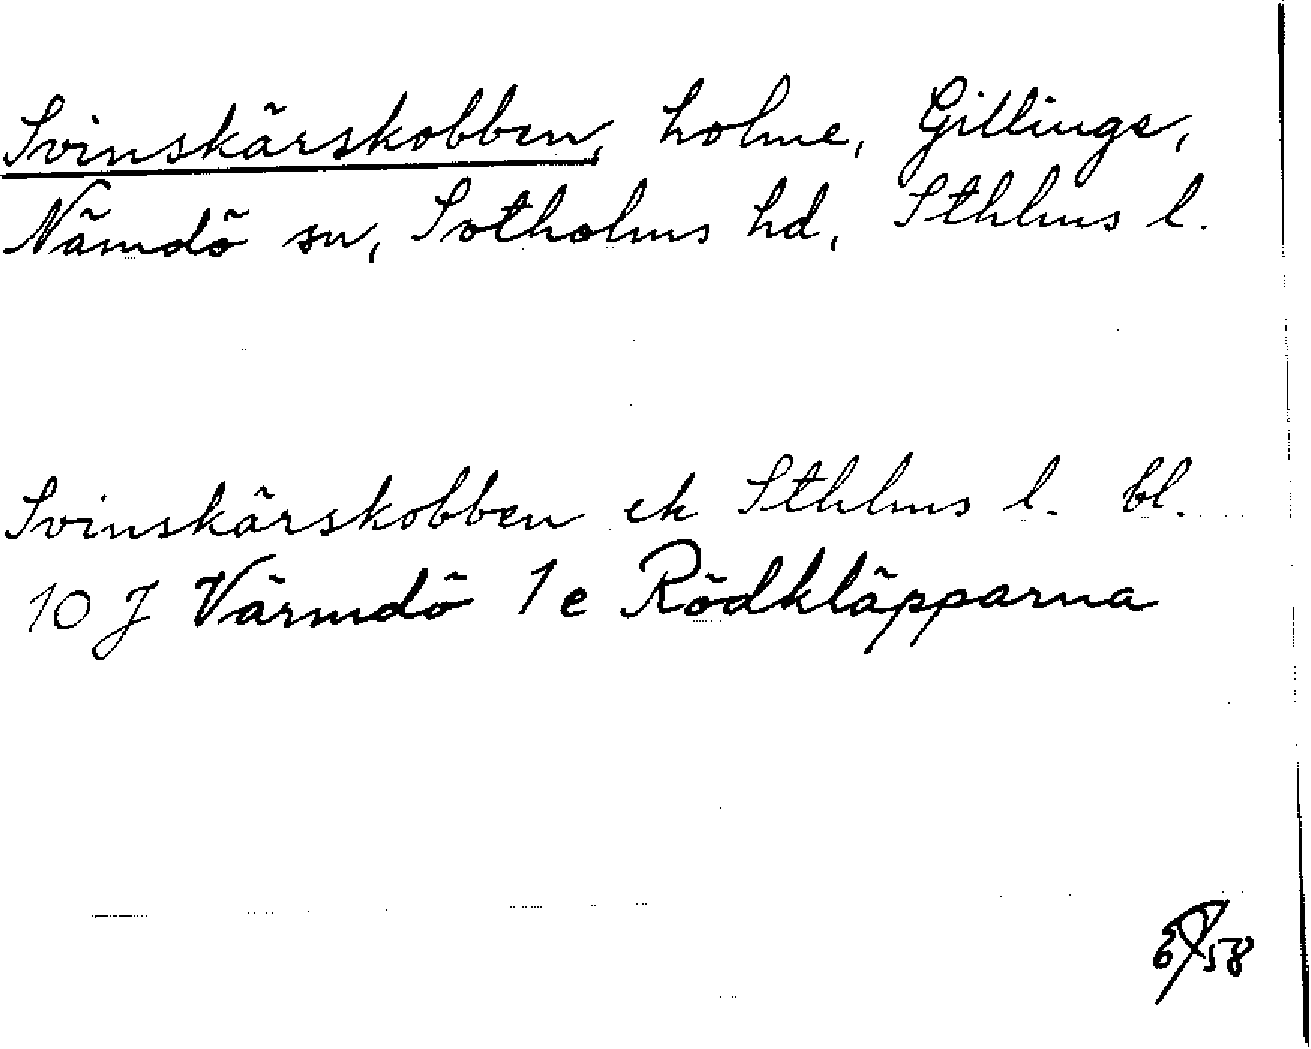 Svinskärskobben, holme, Gillinge,
Nämdö sn, Sotholms hd, Sthlms l.
Svinskärskobben ek Sthlms l. bl.
10 J Värmdö 1 e Rödkläpparna
58